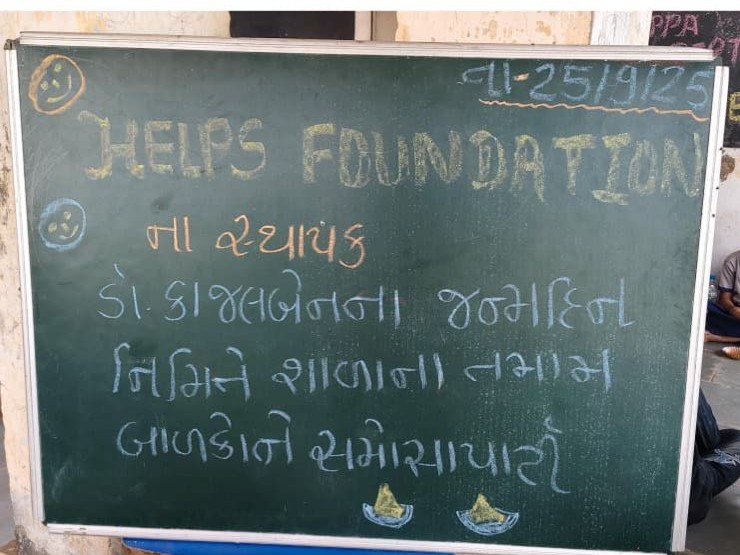 તા-25/9/25
HELPS FOUNDATION
ના સ્થાપક
ડો. કાજલબેનના જન્મદિન
નિમિત્તે શાળાના તમામ
બાળકોને સમોસાપાર્ટી
PPA